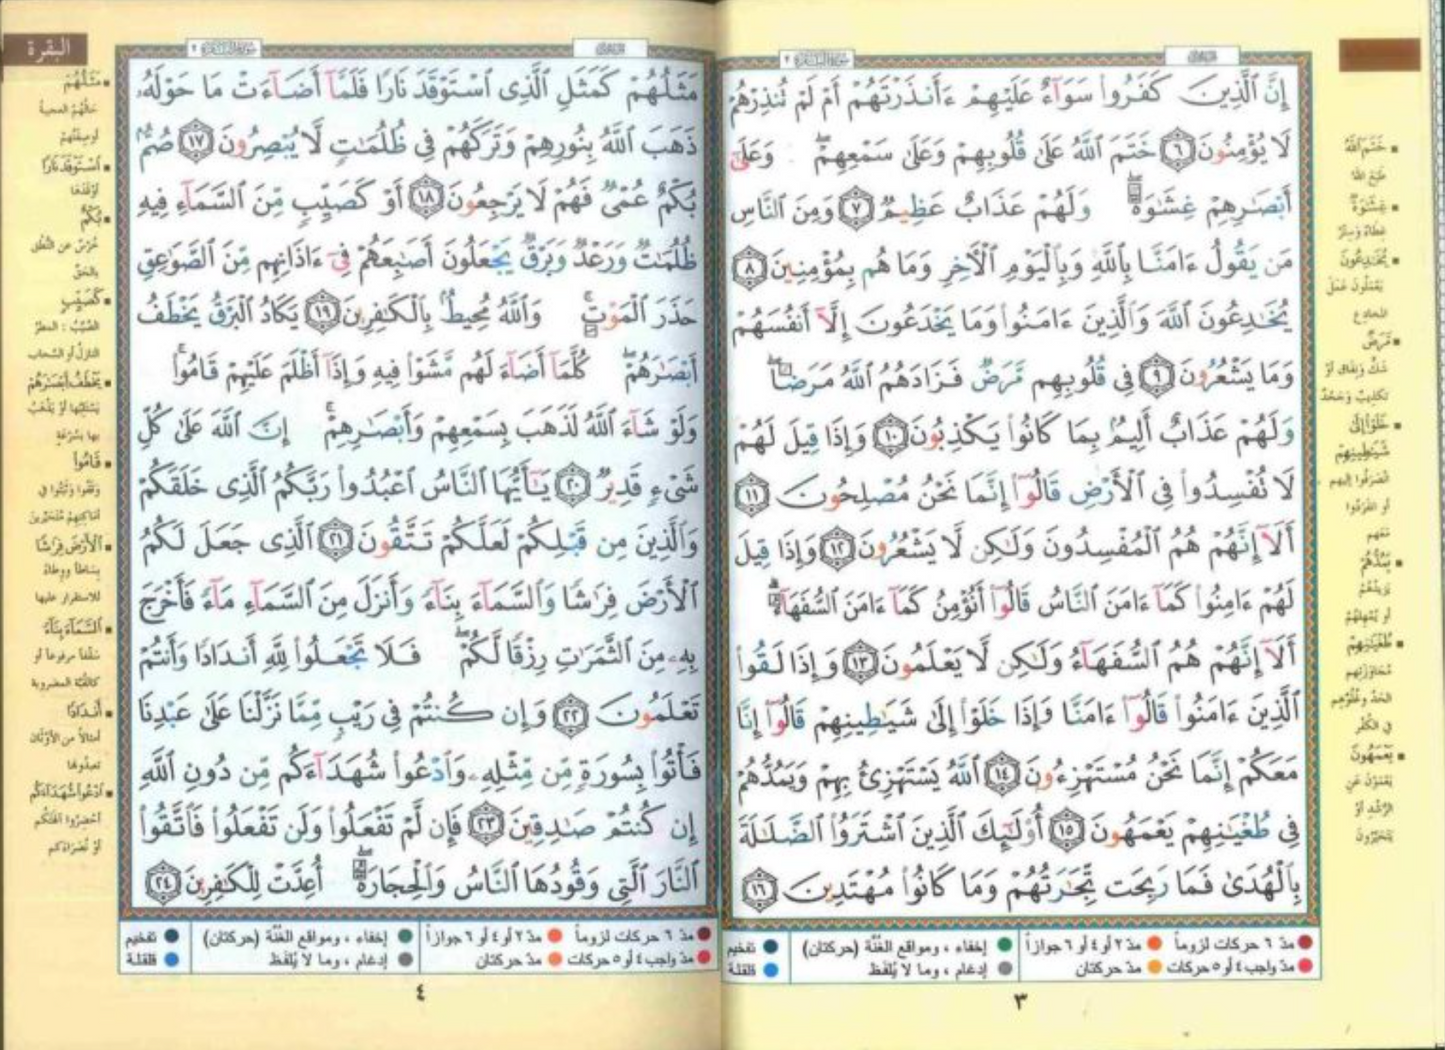 إِنَّ ٱلَّذِينَ كَفَرُوا۟ سَوَآءٌ عَلَيْهِمْ ءَأَنذَرْتَهُمْ أَمْ لَمْ تُنذِرْهُمْ
لَا يُؤْمِنُونَ ٦ خَتَمَ ٱللَّهُ عَلَىٰ قُلُوبِهِمْ وَعَلَىٰ سَمْعِهِمْ ۖ وَعَلَىٰٓ
أَبْصَـٰرِهِمْ غِشَـٰوَةٌ ۖ وَلَهُمْ عَذَابٌ عَظِيمٌ ٧ وَمِنَ ٱلنَّاسِ
مَن يَقُولُ ءَامَنَّا بِٱللَّهِ وَبِٱلْيَوْمِ ٱلْـَٔاخِرِ وَمَا هُم بِمُؤْمِنِينَ ٨
يُخَـٰدِعُونَ ٱللَّهَ وَٱلَّذِينَ ءَامَنُوا۟ وَمَا يَخْدَعُونَ إِلَّآ أَنفُسَهُمْ
وَمَا يَشْعُرُونَ ٩ فِى قُلُوبِهِم مَّرَضٌ فَزَادَهُمُ ٱللَّهُ مَرَضًا ۖ
وَلَهُمْ عَذَابٌ أَلِيمٌۢ بِمَا كَانُوا۟ يَكْذِبُونَ ١٠ وَإِذَا قِيلَ لَهُمْ
لَا تُفْسِدُوا۟ فِى ٱلْأَرْضِ قَالُوٓا۟ إِنَّمَا نَحْنُ مُصْلِحُونَ ١١
أَلَآ إِنَّهُمْ هُمُ ٱلْمُفْسِدُونَ وَلَـٰكِن لَّا يَشْعُرُونَ ١٢ وَإِذَا قِيلَ
لَهُمْ ءَامِنُوا۟ كَمَآ ءَامَنَ ٱلنَّاسُ قَالُوٓا۟ أَنُؤْمِنُ كَمَآ ءَامَنَ ٱلسُّفَهَآءُ ۗ
أَلَآ إِنَّهُمْ هُمُ ٱلسُّفَهَآءُ وَلَـٰكِن لَّا يَعْلَمُونَ ١٣ وَإِذَا لَقُوا۟
ٱلَّذِينَ ءَامَنُوا۟ قَالُوٓا۟ ءَامَنَّا وَإِذَا خَلَوْا۟ إِلَىٰ شَيَـٰطِينِهِمْ قَالُوٓا۟ إِنَّا
مَعَكُمْ إِنَّمَا نَحْنُ مُسْتَهْزِءُونَ ١٤ ٱللَّهُ يَسْتَهْزِئُ بِهِمْ وَيَمُدُّهُمْ
فِى طُغْيَـٰنِهِمْ يَعْمَهُونَ ١٥ أُو۟لَـٰٓئِكَ ٱلَّذِينَ ٱشْتَرَوُا۟ ٱلضَّلَـٰلَةَ
بِٱلْهُدَىٰ فَمَا رَبِحَت تِّجَـٰرَتُهُمْ وَمَا كَانُوا۟ مُهْتَدِينَ ١٦
خَتَمَ ٱللَّهُ
طَبَعَ اللهُ
غِشَـٰوَةٌ
غطاءٌ وسِترٌ
يُخَـٰدِعُونَ
يَعْمَلُونَ عَمَلَ
المُخادِع
مَّرَضٌ
شَكٌّ ونِفَاقٌ أوْ
تكذيبٌ وجَحْدٌ
خَلَوْا۟ إِلَىٰ
شَيَـٰطِينِهِمْ
انْصَرَفُوا إليهم
أو انْفَرَدُوا
مَعَهم
يَمُدُّهُمْ
يَزيدُهُمْ
أو يُمْهِلُهُمْ
طُغْيَـٰنِهِمْ
مُجَاوَزَتِهِم
الحَدَّ وغُلُوِّهِم
في الكُفْر
يَعْمَهُونَ
يَعْمَوْنَ عَنِ
الرُّشْدِ أوْ
يَتَحَيَّرُونَ
مدّ ٦ حركات لزوماً
مدّ ٢ أو ٤ أو ٦ جوازاً
إخفاء ، ومواقع الغُنَّة (حركتان)
تفخيم
مدّ واجب ٤ أو ٥ حركات
مدّ حركتان
إدغام ، وما لا يُلفَظ
قلقلة
٣
البقرة
مَثَلُهُمْ كَمَثَلِ ٱلَّذِى ٱسْتَوْقَدَ نَارًا فَلَمَّآ أَضَآءَتْ مَا حَوْلَهُۥ
ذَهَبَ ٱللَّهُ بِنُورِهِمْ وَتَرَكَهُمْ فِى ظُلُمَـٰتٍ لَّا يُبْصِرُونَ ١٧ صُمٌّۢ
بُكْمٌ عُمْىٌ فَهُمْ لَا يَرْجِعُونَ ١٨ أَوْ كَصَيِّبٍ مِّنَ ٱلسَّمَآءِ فِيهِ
ظُلُمَـٰتٌ وَرَعْدٌ وَبَرْقٌ يَجْعَلُونَ أَصَـٰبِعَهُمْ فِىٓ ءَاذَانِهِم مِّنَ ٱلصَّوَٰعِقِ
حَذَرَ ٱلْمَوْتِ ۚ وَٱللَّهُ مُحِيطٌۢ بِٱلْكَـٰفِرِينَ ١٩ يَكَادُ ٱلْبَرْقُ يَخْطَفُ
أَبْصَـٰرَهُمْ ۖ كُلَّمَآ أَضَآءَ لَهُم مَّشَوْا۟ فِيهِ وَإِذَآ أَظْلَمَ عَلَيْهِمْ قَامُوا۟ ۚ
وَلَوْ شَآءَ ٱللَّهُ لَذَهَبَ بِسَمْعِهِمْ وَأَبْصَـٰرِهِمْ ۚ إِنَّ ٱللَّهَ عَلَىٰ كُلِّ
شَىْءٍ قَدِيرٌ ٢٠ يَـٰٓأَيُّهَا ٱلنَّاسُ ٱعْبُدُوا۟ رَبَّكُمُ ٱلَّذِى خَلَقَكُمْ
وَٱلَّذِينَ مِن قَبْلِكُمْ لَعَلَّكُمْ تَتَّقُونَ ٢١ ٱلَّذِى جَعَلَ لَكُمُ
ٱلْأَرْضَ فِرَٰشًا وَٱلسَّمَآءَ بِنَآءً وَأَنزَلَ مِنَ ٱلسَّمَآءِ مَآءً فَأَخْرَجَ
بِهِۦ مِنَ ٱلثَّمَرَٰتِ رِزْقًا لَّكُمْ ۖ فَلَا تَجْعَلُوا۟ لِلَّهِ أَندَادًا وَأَنتُمْ
تَعْلَمُونَ ٢٢ وَإِن كُنتُمْ فِى رَيْبٍ مِّمَّا نَزَّلْنَا عَلَىٰ عَبْدِنَا
فَأْتُوا۟ بِسُورَةٍ مِّن مِّثْلِهِۦ وَٱدْعُوا۟ شُهَدَآءَكُم مِّن دُونِ ٱللَّهِ
إِن كُنتُمْ صَـٰدِقِينَ ٢٣ فَإِن لَّمْ تَفْعَلُوا۟ وَلَن تَفْعَلُوا۟ فَٱتَّقُوا۟
ٱلنَّارَ ٱلَّتِى وَقُودُهَا ٱلنَّاسُ وَٱلْحِجَارَةُ ۖ أُعِدَّتْ لِلْكَـٰفِرِينَ ٢٤
مَثَلُهُمْ
حالُهُمُ العجيبة
أو صِفَتُهُمْ
ٱسْتَوْقَدَ نَارًا
أوْقَدَها
بُكْمٌ
خُرْسٌ عن النُّطْقِ
بالحَقِّ
كَصَيِّبٍ
الصَّيِّبُ : المطرُ
النازلُ أو السَّحاب
يَخْطَفُ أَبْصَـٰرَهُمْ
يَسْتَلِبُها أوْ يَذْهَبُ
بها بسُرْعَةٍ
قَامُوا۟
وَقَفُوا وثَبَتُوا في
أماكِنِهِمْ مُتَحَيِّرين
ٱلْأَرْضَ فِرَٰشًا
بِسَاطاً ووِطَاءً
للاستقرارِ عليها
ٱلسَّمَآءَ بِنَآءً
سَقْفاً مرفوعاً أو
كالقُبَّةِ المضروبة
أَندَادًا
أمثالاً من الأَوْثَان
تعبدُونها
ٱدْعُوا۟ شُهَدَآءَكُم
أحْضِرُوا آلهَتَكُم
أوْ نُصَرَاءَكم
مدّ ٦ حركات لزوماً
مدّ ٢ أو ٤ أو ٦ جوازاً
إخفاء ، ومواقع الغُنَّة (حركتان)
تفخيم
مدّ واجب ٤ أو ٥ حركات
مدّ حركتان
إدغام ، وما لا يُلفَظ
قلقلة
٤